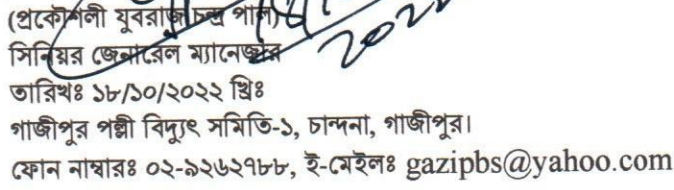 (প্রকৌশলী যুবরাজ চন্দ্র পাল)
সিনিয়র জেনারেল ম্যানেজার
2022
তারিখঃ ১৮/১০/২০২২ খ্রিঃ
গাজীপুর পল্লী বিদ্যুৎ সমিতি-১, চান্দনা, গাজীপুর।
ফোন নাম্বারঃ ০২-৯২৬২৭৮৮, ই-মেইলঃ gazipbs@yahoo.com